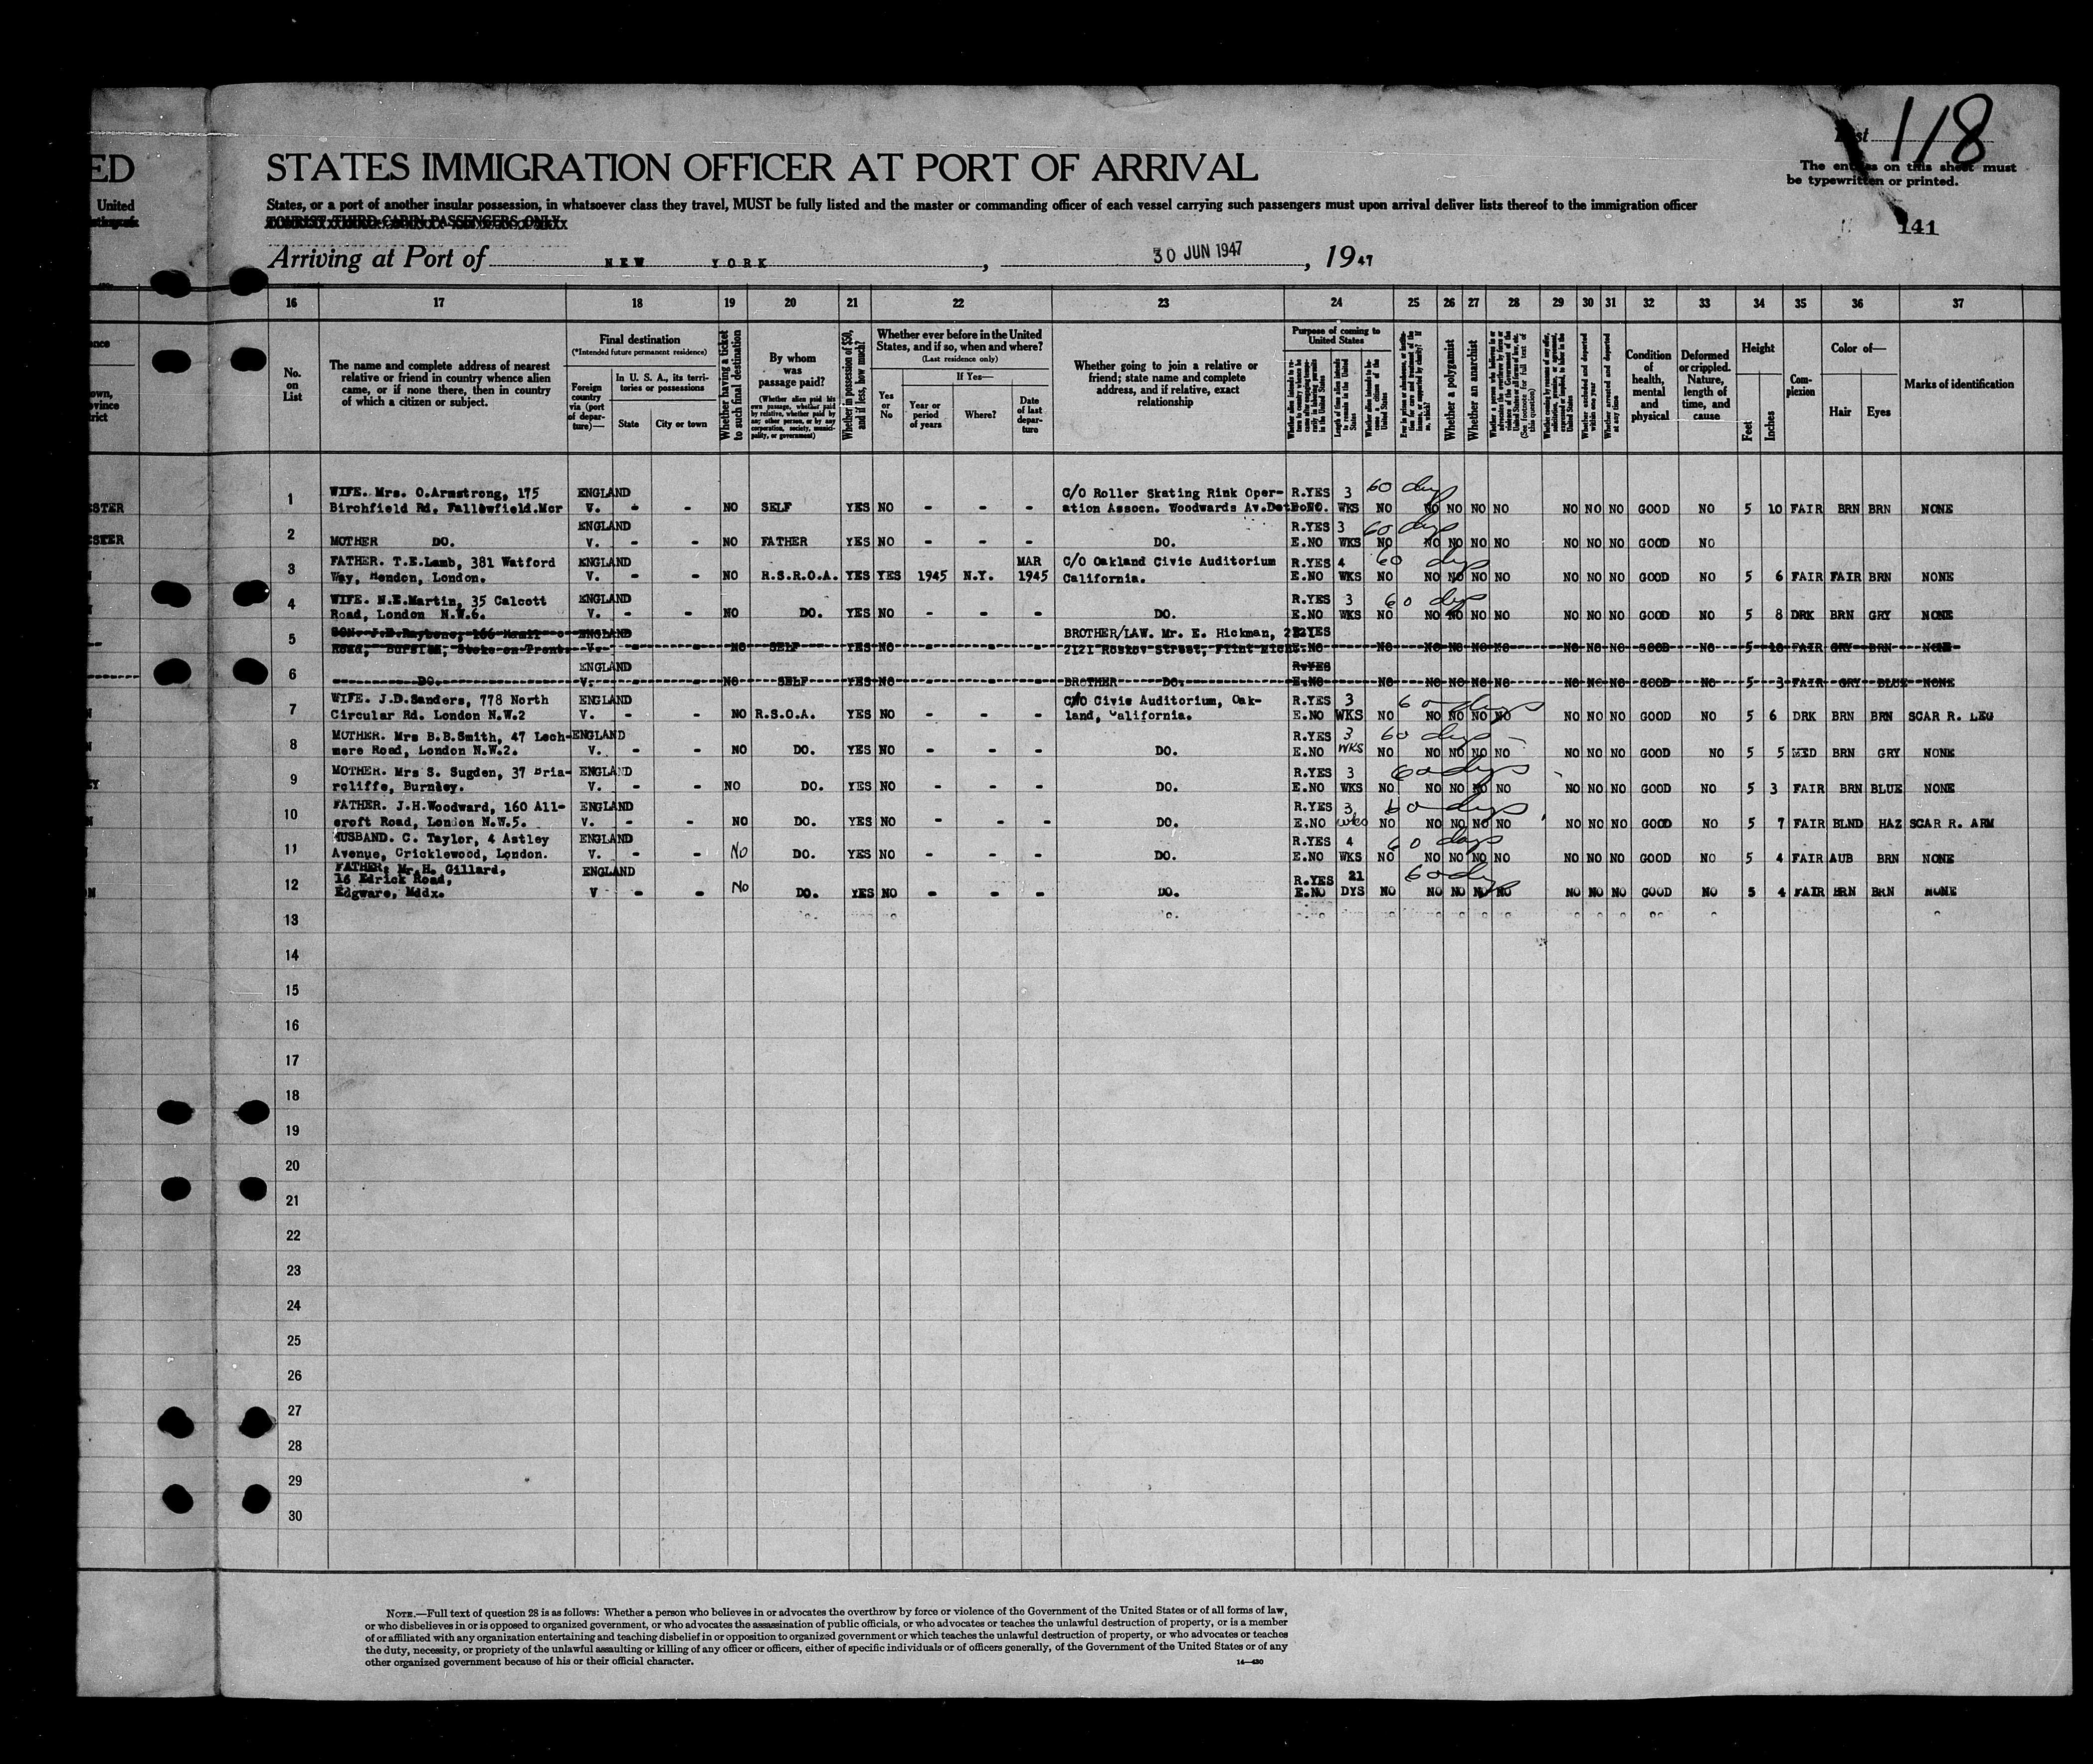 ED
STATES IMMIGRATION OFFICER AT PORT OF ARRIVAL
118
The entries on this sheet must
be typewritten or printed.
United
States, or a port of another insular possession, in whatsoever class they travel, MUST be fully listed and the master or commanding officer of each vessel carrying such passengers must upon arrival deliver lists thereof to the immigration officer
TOURIST THIRD CABIN PASSENGERS ONLY
141
Arriving at Port of NEW YORK, 30 JUN 1947, 1947
16 17 18 19 20 21 22 23 24 25 26 27 28 29 30 31 32 33 34 35 36 37
No. on List
The name and complete address of nearest relative or friend in country whence alien came, or if none there, then in country of which a citizen or subject.
Final destination
(*Intended future permanent residence)
Foreign country via (port of departure)—
In U. S. A., its territories or possessions
State
City or town
Whether having a ticket to such final destination
By whom was passage paid?
(Whether alien paid his own passage, whether paid by relative, whether paid by any other person, or by any corporation, society, municipality, or government)
Whether in possession of $50, and if less, how much?
Whether ever before in the United States, and if so, when and where?
(Last residence only)
If Yes—
Yes or No
Year or period of years
Where?
Date of last departure
Whether going to join a relative or friend; state name and complete address, and if relative, exact relationship
Purpose of coming to United States
Whether a polygamist
Whether an anarchist
Condition of health, mental and physical
Deformed or crippled. Nature, length of time, and cause
Height
Feet
Inches
Complexion
Color of—
Hair
Eyes
Marks of identification
1 WIFE. Mrs. O.Armstrong, 175 ENGLAND C/O Roller Skating Rink Oper- R.YES 3 60 days
Birchfield Rd. Fallowfield.Mcr V. - - NO SELF YES NO - - - ation Assocn. Woodwards Av. WKS NO NO NO NO NO NO NO NO GOOD NO 5 10 FAIR BRN BRN NONE
2 ENGLAND R.YES 3 60 days
MOTHER DO. V. - - NO FATHER YES NO - - - DO. E.NO WKS NO NO NO NO NO NO NO NO GOOD NO
3 FATHER. T.E.Lamb, 381 Watford ENGLAND MAR C/O Oakland Civic Auditorium R.YES 4 60 days
Way, Hendon, London. V. - - NO R.S.R.O.A. YES YES 1945 N.Y. 1945 California. E.NO WKS NO NO NO NO NO NO NO NO GOOD NO 5 6 FAIR FAIR BRN NONE
4 WIFE. N.E.Martin, 35 Calcott ENGLAND R.YES 3 60 days
Road, London N.W.6. V. - - NO DO. YES NO - - - DO. E.NO WKS NO NO NO NO NO NO NO NO GOOD NO 5 8 DRK BRN GRY NONE
5 SON. ENGLAND BROTHER/LAW. Mr. E. Hickman, R.YES
Road, Burslem, Stoke on Trent. V. NO SELF YES NO Street, Flint E.NO NO NO NO NO NO NO NO NO GOOD NO 5 10 FAIR GRY BRN NONE
6 ENGLAND R.YES
DO. V. NO SELF YES NO BROTHER DO. E.NO NO NO NO NO NO NO NO NO GOOD NO 5 3 FAIR GRY BLUE NONE
7 WIFE. J.D.Sanders, 778 North ENGLAND C/O Civic Auditorium, Oak- R.YES 3 60 days
Circular Rd. London N.W.2 V. - - NO R.S.O.A. YES NO - - - land, California. E.NO WKS NO NO NO NO NO NO NO NO GOOD NO 5 6 DRK BRN BRN SCAR R. LEG
8 MOTHER. Mrs B.B.Smith, 47 Lech- ENGLAND R.YES 3 60 days
mere Road, London N.W.2. V. - - NO DO. YES NO - - - DO. E.NO WKS NO NO NO NO NO NO NO NO GOOD NO 5 5 MED BRN GRY NONE
9 MOTHER. Mrs S. Sugden, 37 Bria- ENGLAND R.YES 3 60 days
rcliffe, Burnley. V. - - NO DO. YES NO - - - DO. E.NO WKS NO NO NO NO NO NO NO NO GOOD NO 5 3 FAIR BRN BLUE NONE
10 FATHER. J.H.Woodward, 160 All- ENGLAND R.YES 3 60 days
croft Road, London N.W.5. V. - - NO DO. YES NO - - - DO. E.NO wks NO NO NO NO NO NO NO NO GOOD NO 5 7 FAIR BLND HAZ SCAR R. ARM
11 HUSBAND. C. Taylor, 4 Astley ENGLAND R.YES 4 60 days
Avenue, Cricklewood, London. V. - - No DO. YES NO - - - DO. E.NO WKS NO NO NO NO NO NO NO NO GOOD NO 5 4 FAIR AUB BRN NONE
12 FATHER: Mr.H. Gillard, ENGLAND R.YES 21 60 days
16 Edrick Road,
Edgware, Mddx. V - - No DO. YES NO - - - DO. E.NO DYS NO NO NO NO NO NO NO NO GOOD NO 5 4 FAIR BRN BRN NONE
13
14
15
16
17
18
19
20
21
22
23
24
25
26
27
28
29
30
NOTE.—Full text of question 28 is as follows: Whether a person who believes in or advocates the overthrow by force or violence of the Government of the United States or of all forms of law,
or who disbelieves in or is opposed to organized government, or who advocates the assassination of public officials, or who advocates or teaches the unlawful destruction of property, or is a member
of or affiliated with any organization entertaining and teaching disbelief in or opposition to organized government or which teaches the unlawful destruction of property, or who advocates or teaches
the duty, necessity, or propriety of the unlawful assaulting or killing of any officer or officers, either of specific individuals or of officers generally, of the Government of the United States or of any
other organized government because of his or their official character.
14—430